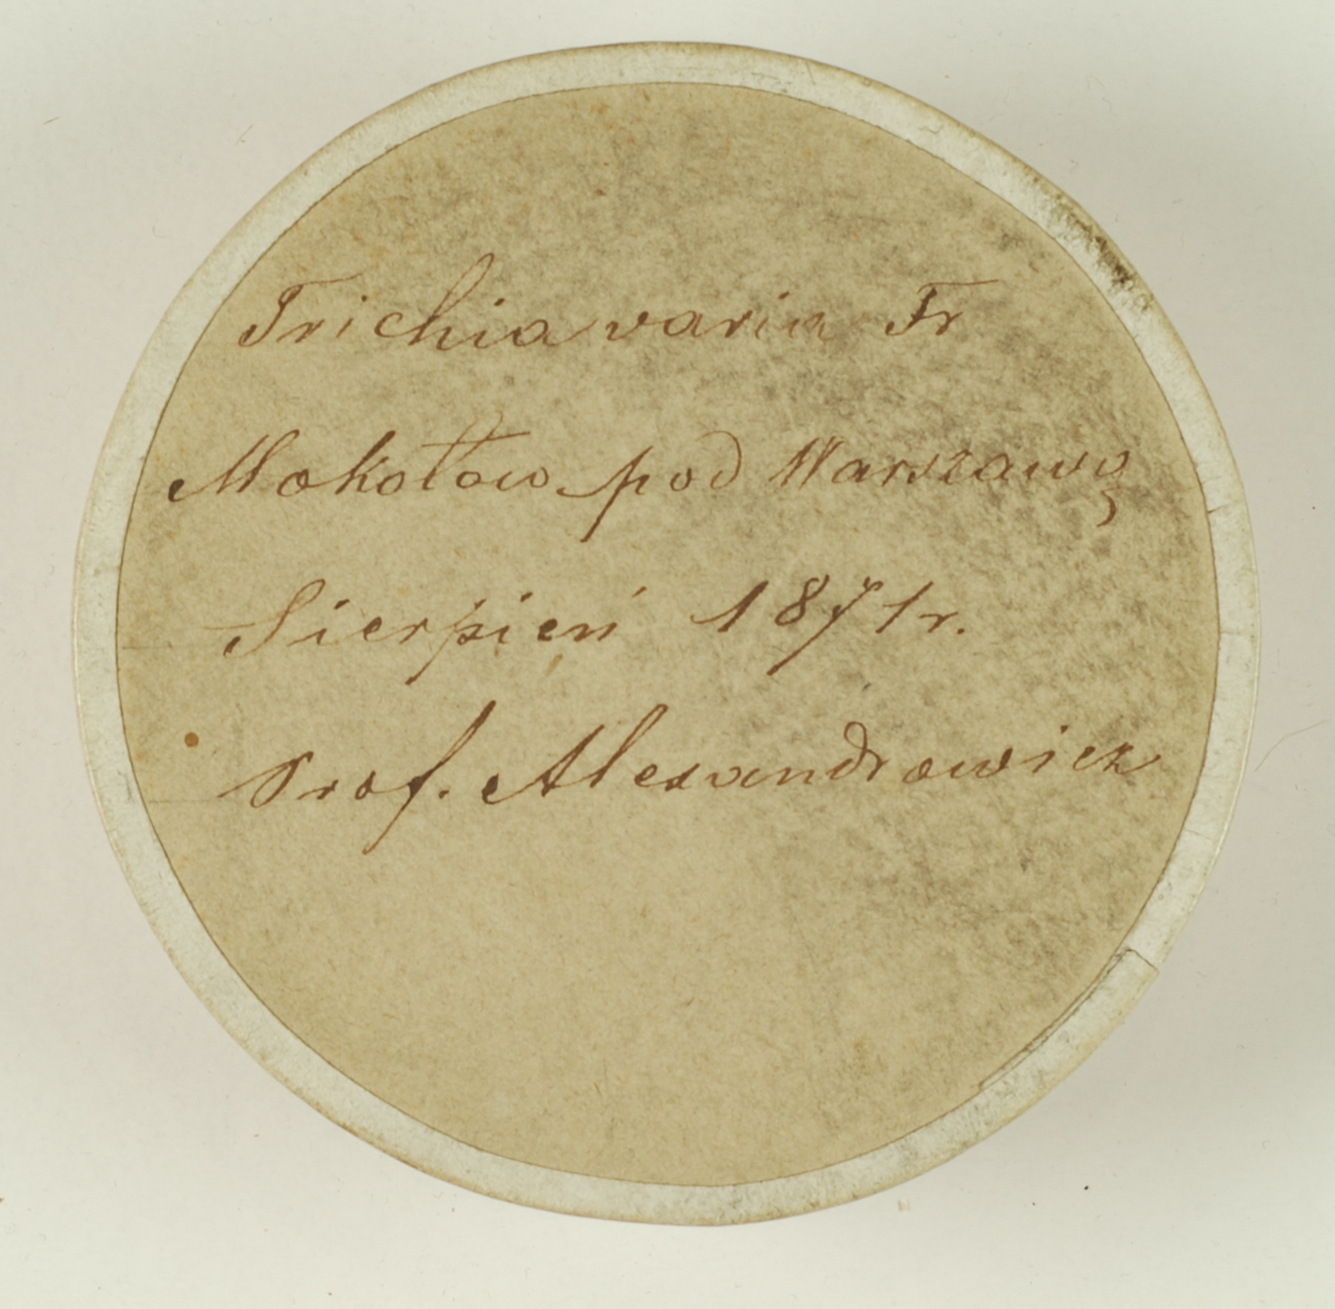 Trichia varia Fr
Mokotow pod Warszawą
Sierpień 1871 r.
Prof. Alexandrowicz